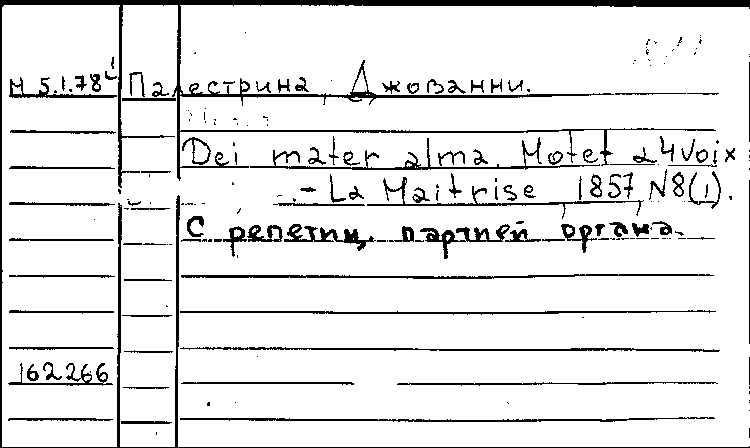 М 5.1.78 Палестрина, Джованни.
Dei mater alma. Motet a 4 voix
– La Maitrise, 1857, N8(1).
С репетиц. партией органа.
162266